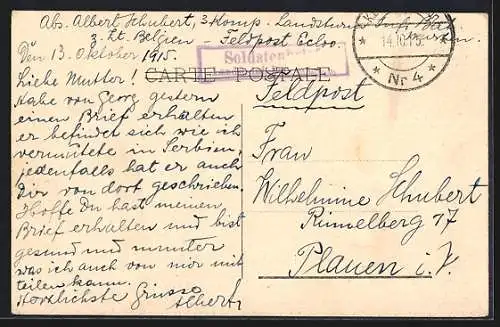 Abs. Albert Schubert, 3 Komp. Landsturm Inft. Batl.
z. Zt. Belgien - Feldpost Ecloo.
Den 13. Oktober 1915.
Soldaten
CARTE POSTALE
14.10.15.
* Nr 4 *
Liebe Mutter!
Habe von Georg gestern
einen Brief erhalten
er befindet sich wie ich
vermutete in Serbien,
jedenfalls hat er auch
Dir von dort geschrieben.
Hoffe Du hast meinen
Brief erhalten und bist
gesund und munter
was ich auch von mir mit
teilen kann.
Herzlichste Grüsse
Albert
Feldpost
Frau
Wilhelmine Schubert
Rinnelberg 17
Plauen i. V.